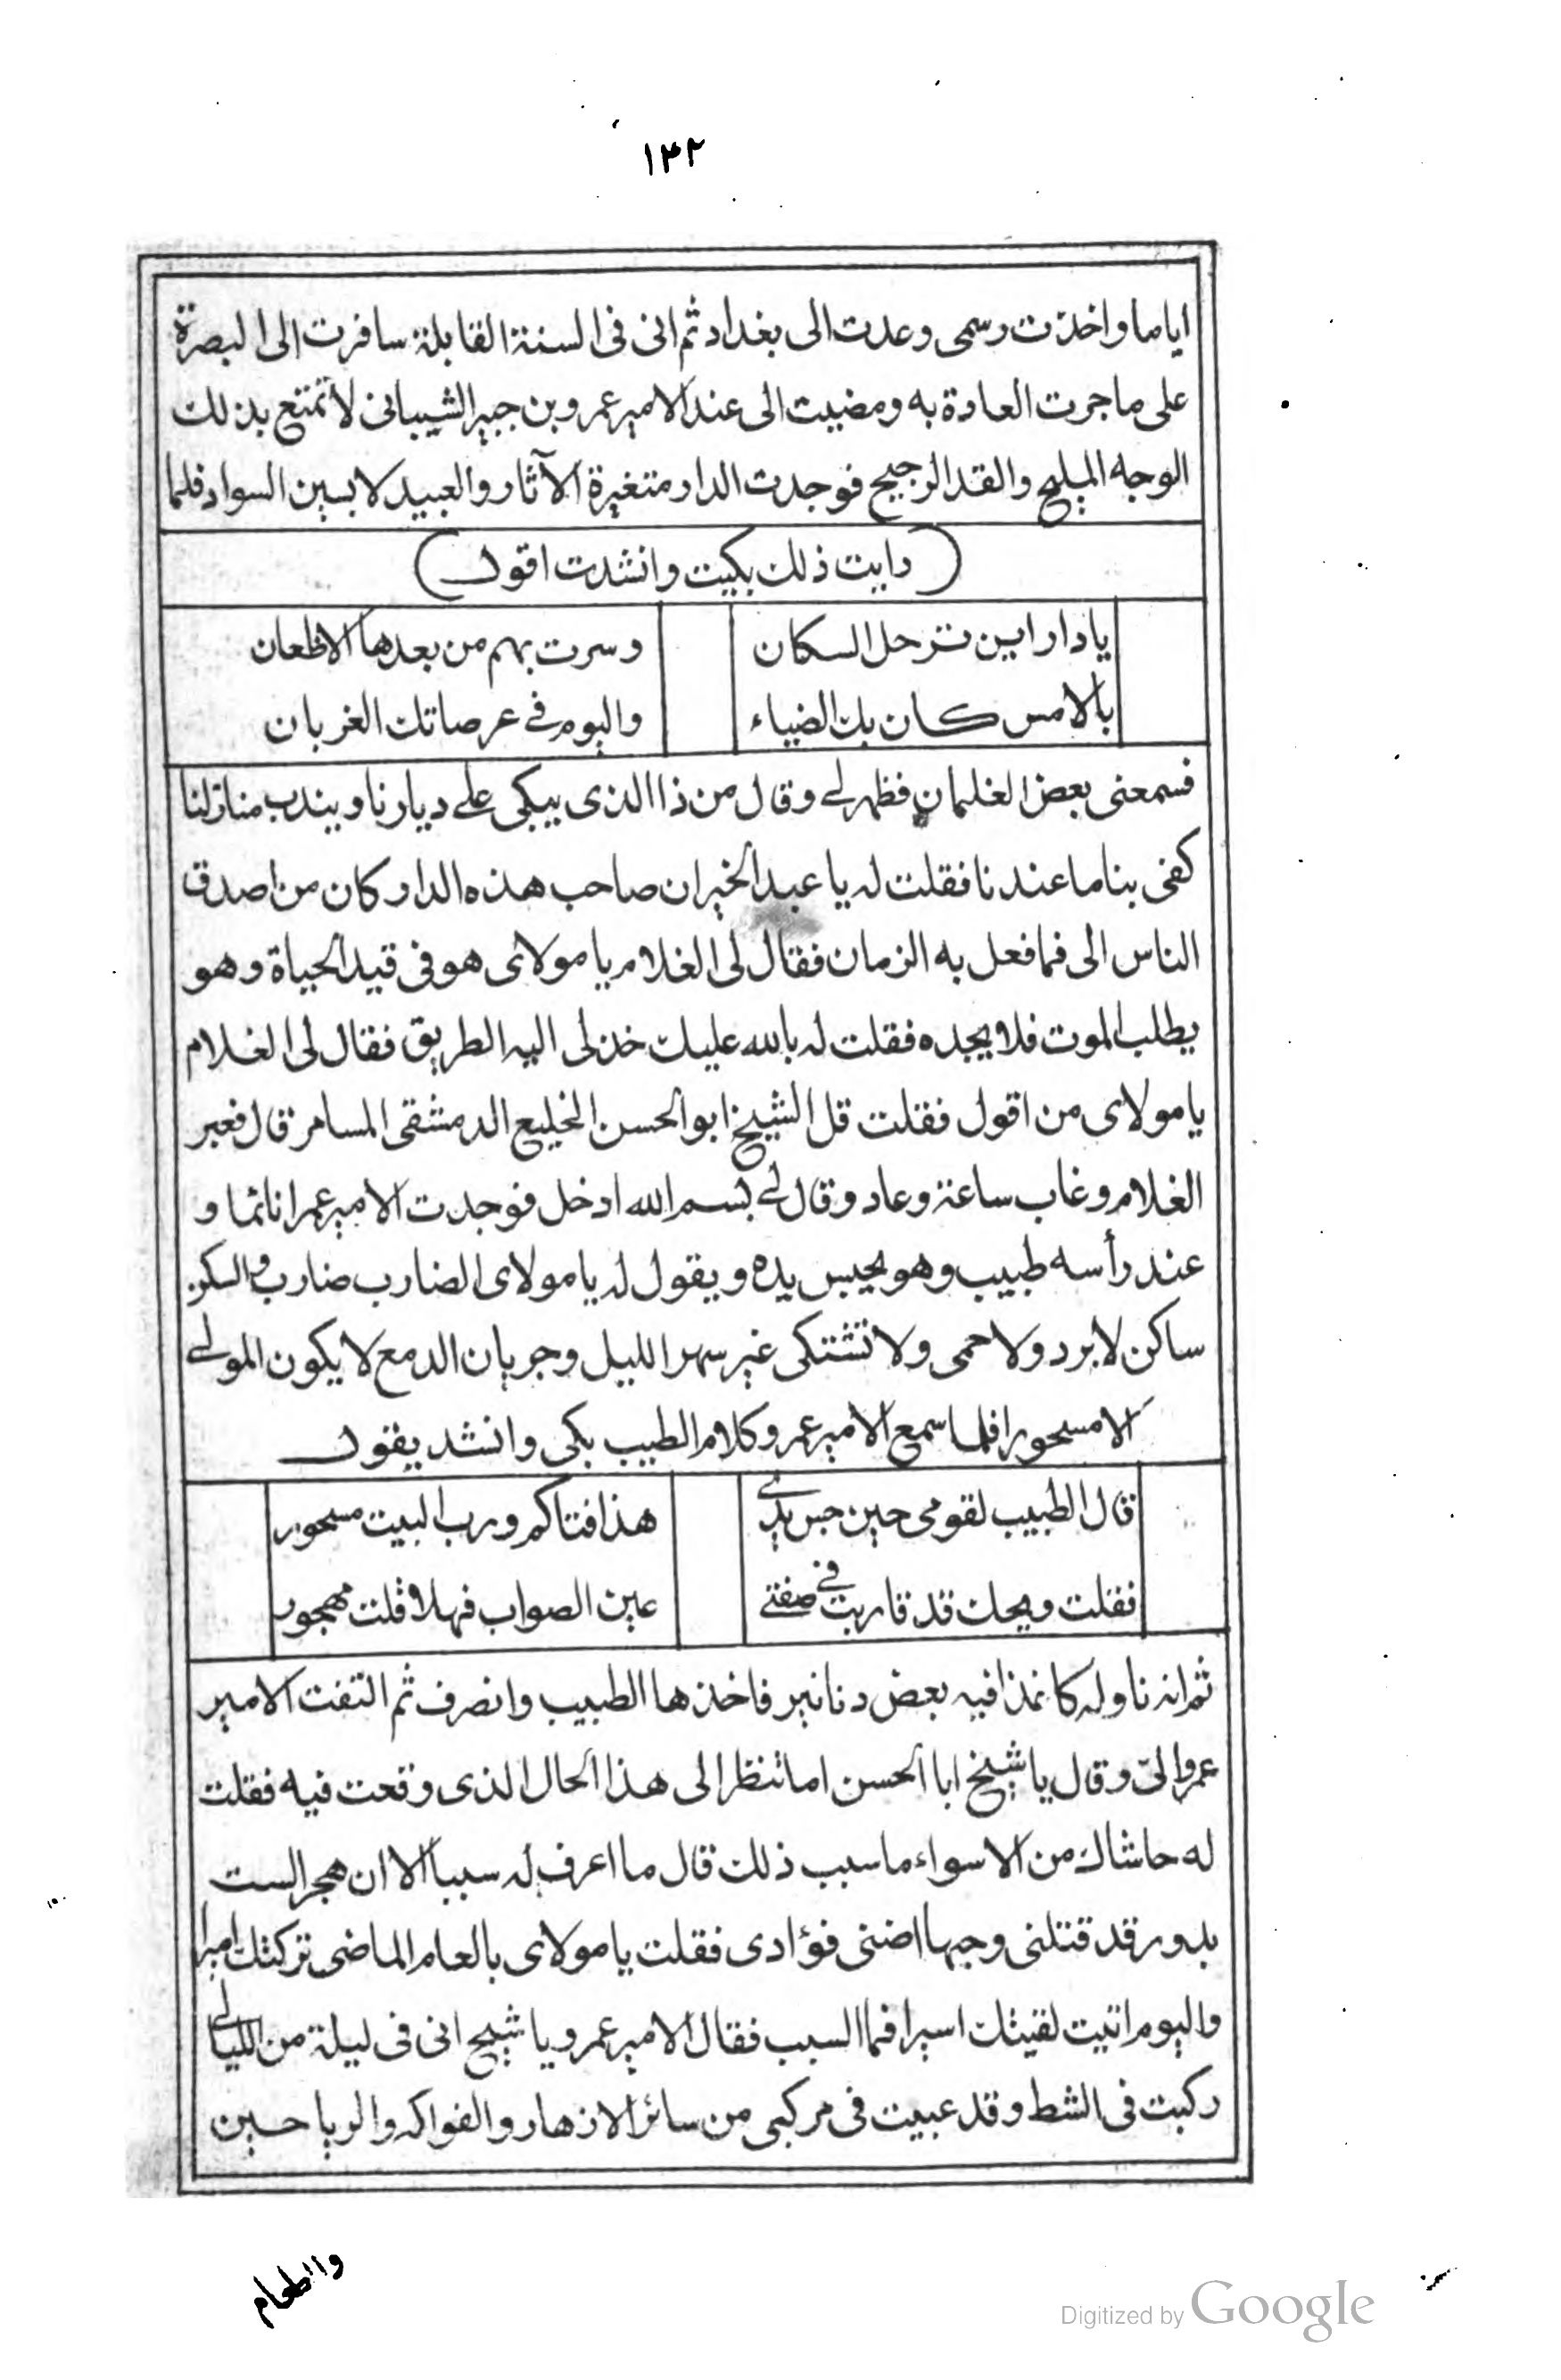 ١٣٢
اياما واخذت رسمى وعدت الى بغداد ثم انى فى السنة القابلة سافرت الى البصرة
على ما جرت العادة به ومضيت الى عند الامير عمرو بن جبير الشيبانى لا تمتع بذلك
الوجه المليح والقد الرجيح فوجدت الدار متغيرة الآثار والعبيد لابسين السواد فلما
(رايت ذلك بكيت وانشدت اقول)
يا دار اين ترحل السكان وسرت بهم من بعدها الاظعان
بالامس كان بك الضياء واليوم فى عرصاتك الغربان
فسمعنى بعض الغلمان فظهر لى وقال من ذا الذى يبكى على ديارنا ويندب منازلنا
كفى بنا ما عندنا فقلت له يا عبد الخير ان صاحب هذه الدار كان من اصدق
الناس الى فما فعل به الزمان فقال لى الغلام يا مولاى هو فى قيد الحياة وهو
يطلب الموت فلا يجده فقلت له بالله عليك خذ لى اليه الطريق فقال لى الغلام
يا مولاى من اقول فقلت قل الشيخ ابو الحسن الخليع الدمشقى المسامر قال فعبر
الغلام وغاب ساعة وعاد وقال لى بسم الله ادخل فوجدت الامير عمرا نائما و
عند رأسه طبيب وهو يحبس يده ويقول له يا مولاى الضارب ضارب والسكن
ساكن لا برد ولا حمى ولا تشتكى غير سهر الليل وجريان الدمع لا يكون المولى
الا مسحورا فلما سمع الامير عمرو كلام الطبيب بكى وانشد يقول
قال الطبيب لقومى حين جس يدى هذا فتاكم ورب البيت مسحور
فقلت ويحك قد قاربت فى صفتى عين الصواب فهلا قلت مهجور
ثم انه ناوله كاغذا فيه بعض دنانير فاخذها الطبيب وانصرف ثم التفت الامير
عمرو الىّ وقال يا شيخ ابا الحسن اما تنظر الى هذا الحال الذى وقعت فيه فقلت
له حاشاك من الاسواء ما سبب ذلك قال ما اعرف له سببا الا ان هجر الست
بدور قد قتلنى وحبها اضنى فؤادى فقلت يا مولاى بالعام الماضى تركتك اميرا
واليوم اتيت لقيتك اسيرا فما السبب فقال الامير عمرو يا شيخ انى فى ليلة من الليالى
ركبت فى الشط وقد عبيت فى مركبى من سائر الازهار والفواكه والرياحين
والطعام
Digitized by Google